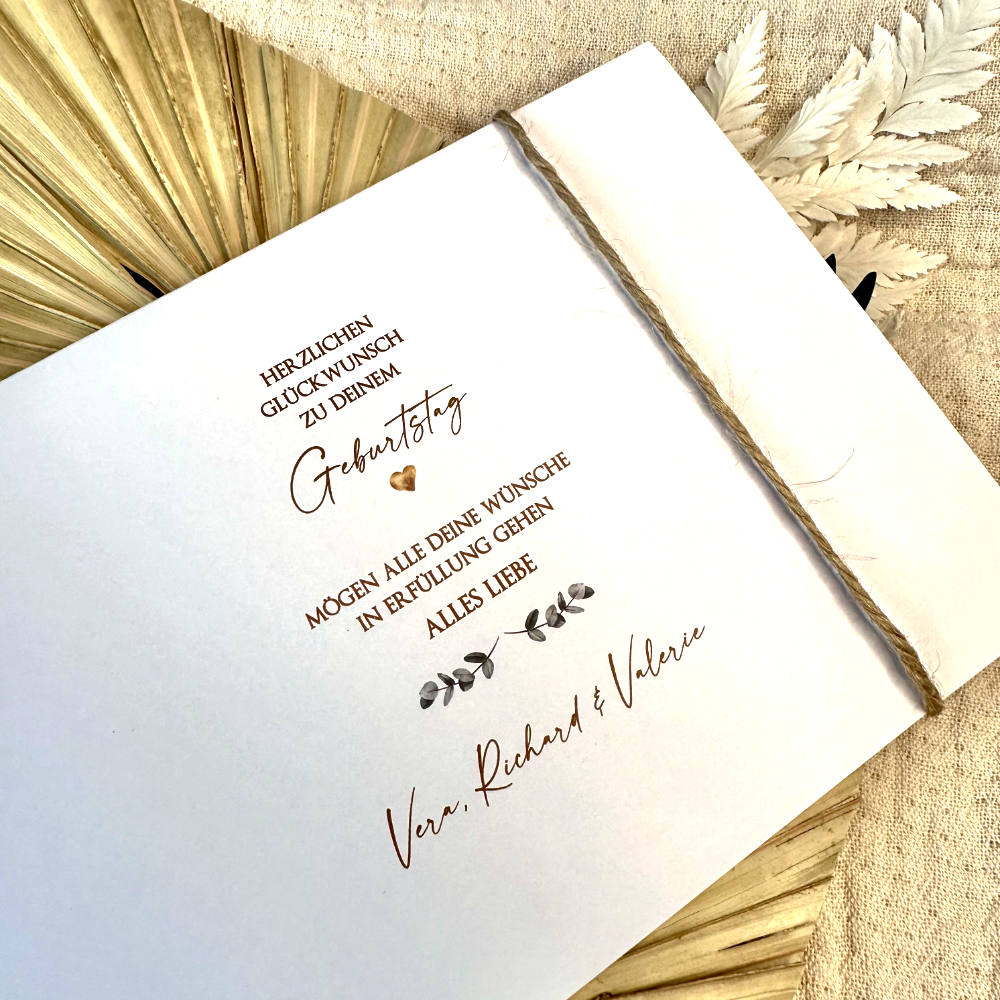 HERZLICHEN
GLÜCKWUNSCH
ZU DEINEM
Geburtstag
MÖGEN ALLE DEINE WÜNSCHE
IN ERFÜLLUNG GEHEN
ALLES LIEBE
Vera, Richard & Valerie